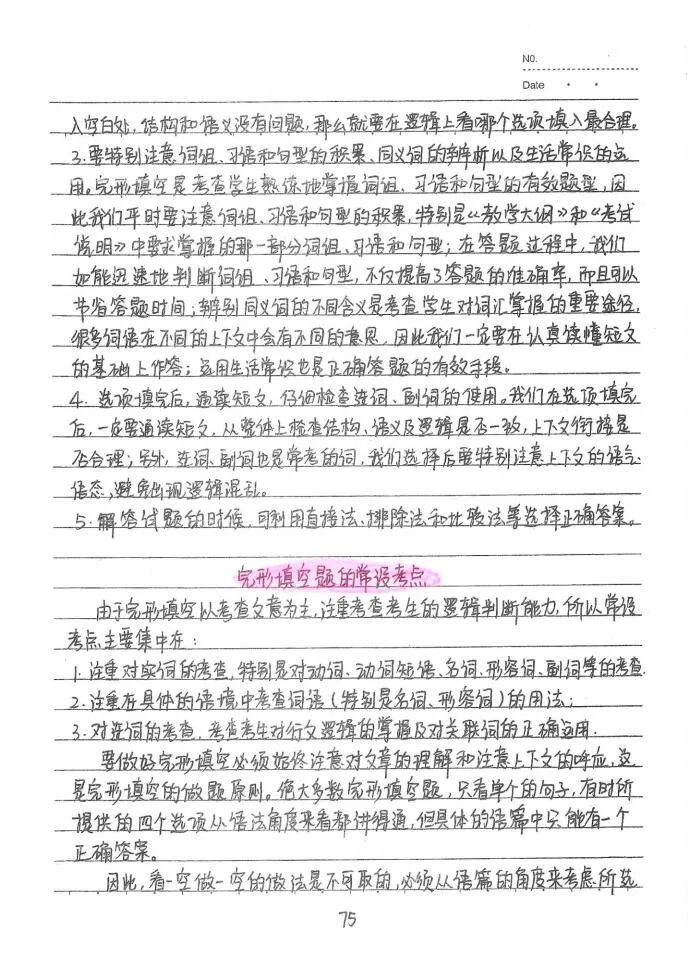 NO.
Date
入空白处，结构和语义没有问题，那么就要在逻辑上看哪个选项填入最合理。
3.要特别注意词组、习语和句型的积累、同义词的辨析以及生活常识的运
用。完形填空是考查学生熟练地掌握词组、习语和句型的有效题型，因
此我们平时要注意词组、习语和句型的积累，特别是《教学大纲》和《考试
说明》中要求掌握的那一部分词组、习语和句型；在答题过程中，我们
如能迅速地判断词组、习语和句型，不仅提高了答题的准确率，而且可以
节省答题时间；辨别同义词的不同含义是考查学生对词汇掌握的重要途径，
很多词语在不同的上下文中会有不同的意思，因此我们一定要在认真读懂短文
的基础上作答；运用生活常识也是正确答题的有效手段。
4. 选项填完后，通读短文，仔细检查连词、副词的使用。我们在选项填完
后，一定要通读短文，从整体上检查结构、语义及逻辑是否一致，上下文衔接是
否合理；另外，连词、副词也是常考的词，我们选择后要特别注意上下文的语气、
语态，避免出现逻辑混乱。
5.解答试题的时候，可利用直接法、排除法和比较法等选择正确答案。
完形填空题的常设考点
由于完形填空以考查文意为主，注重考查考生的逻辑判断能力，所以常设
考点主要集中在：
1.注重对实词的考查，特别是对动词、动词短语、名词、形容词、副词等的考查.
2.注重在具体的语境中考查词语（特别是名词、形容词）的用法；
3.对连词的考查，考查考生对行文逻辑的掌握及对关联词的正确运用.
要做好完形填空必须始终注意对文章的理解和注意上下文的呼应，这
是完形填空的做题原则。绝大多数完形填空题，只看单个的句子，有时所
提供的四个选项从语法角度来看都讲得通，但具体的语篇中只能有一个
正确答案。
因此，看一空做一空的做法是不可取的，必须从语篇的角度来考虑所选
75